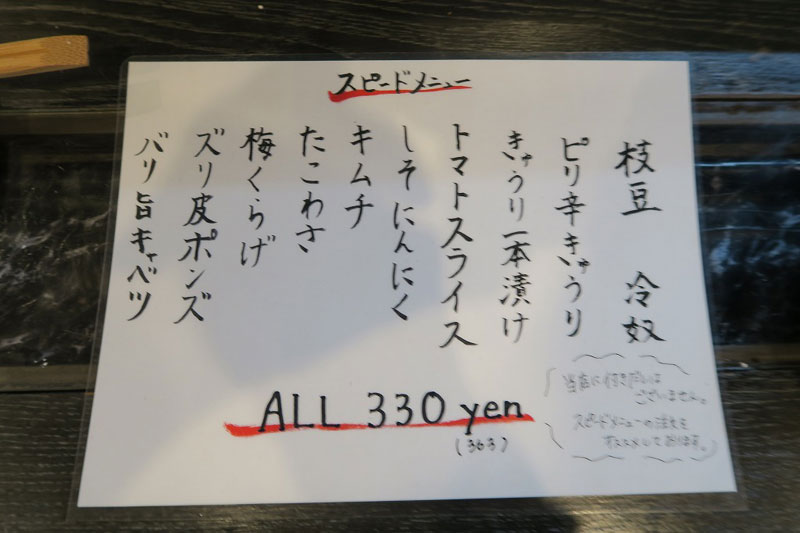 スピードメニュー
枝豆 冷奴
ピリ辛きゅうり
きゅうり一本漬け
トマトスライス
しそにんにく
キムチ
たこわさ
梅くらげ
ズリ皮ポンズ
バリ旨キャベツ
ALL 330 yen
(363)
当店に付きだしは
ございません。
スピードメニューの注文を
オススメしております。